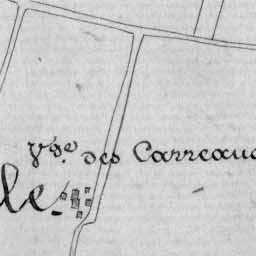 Vge des Carreaux
le